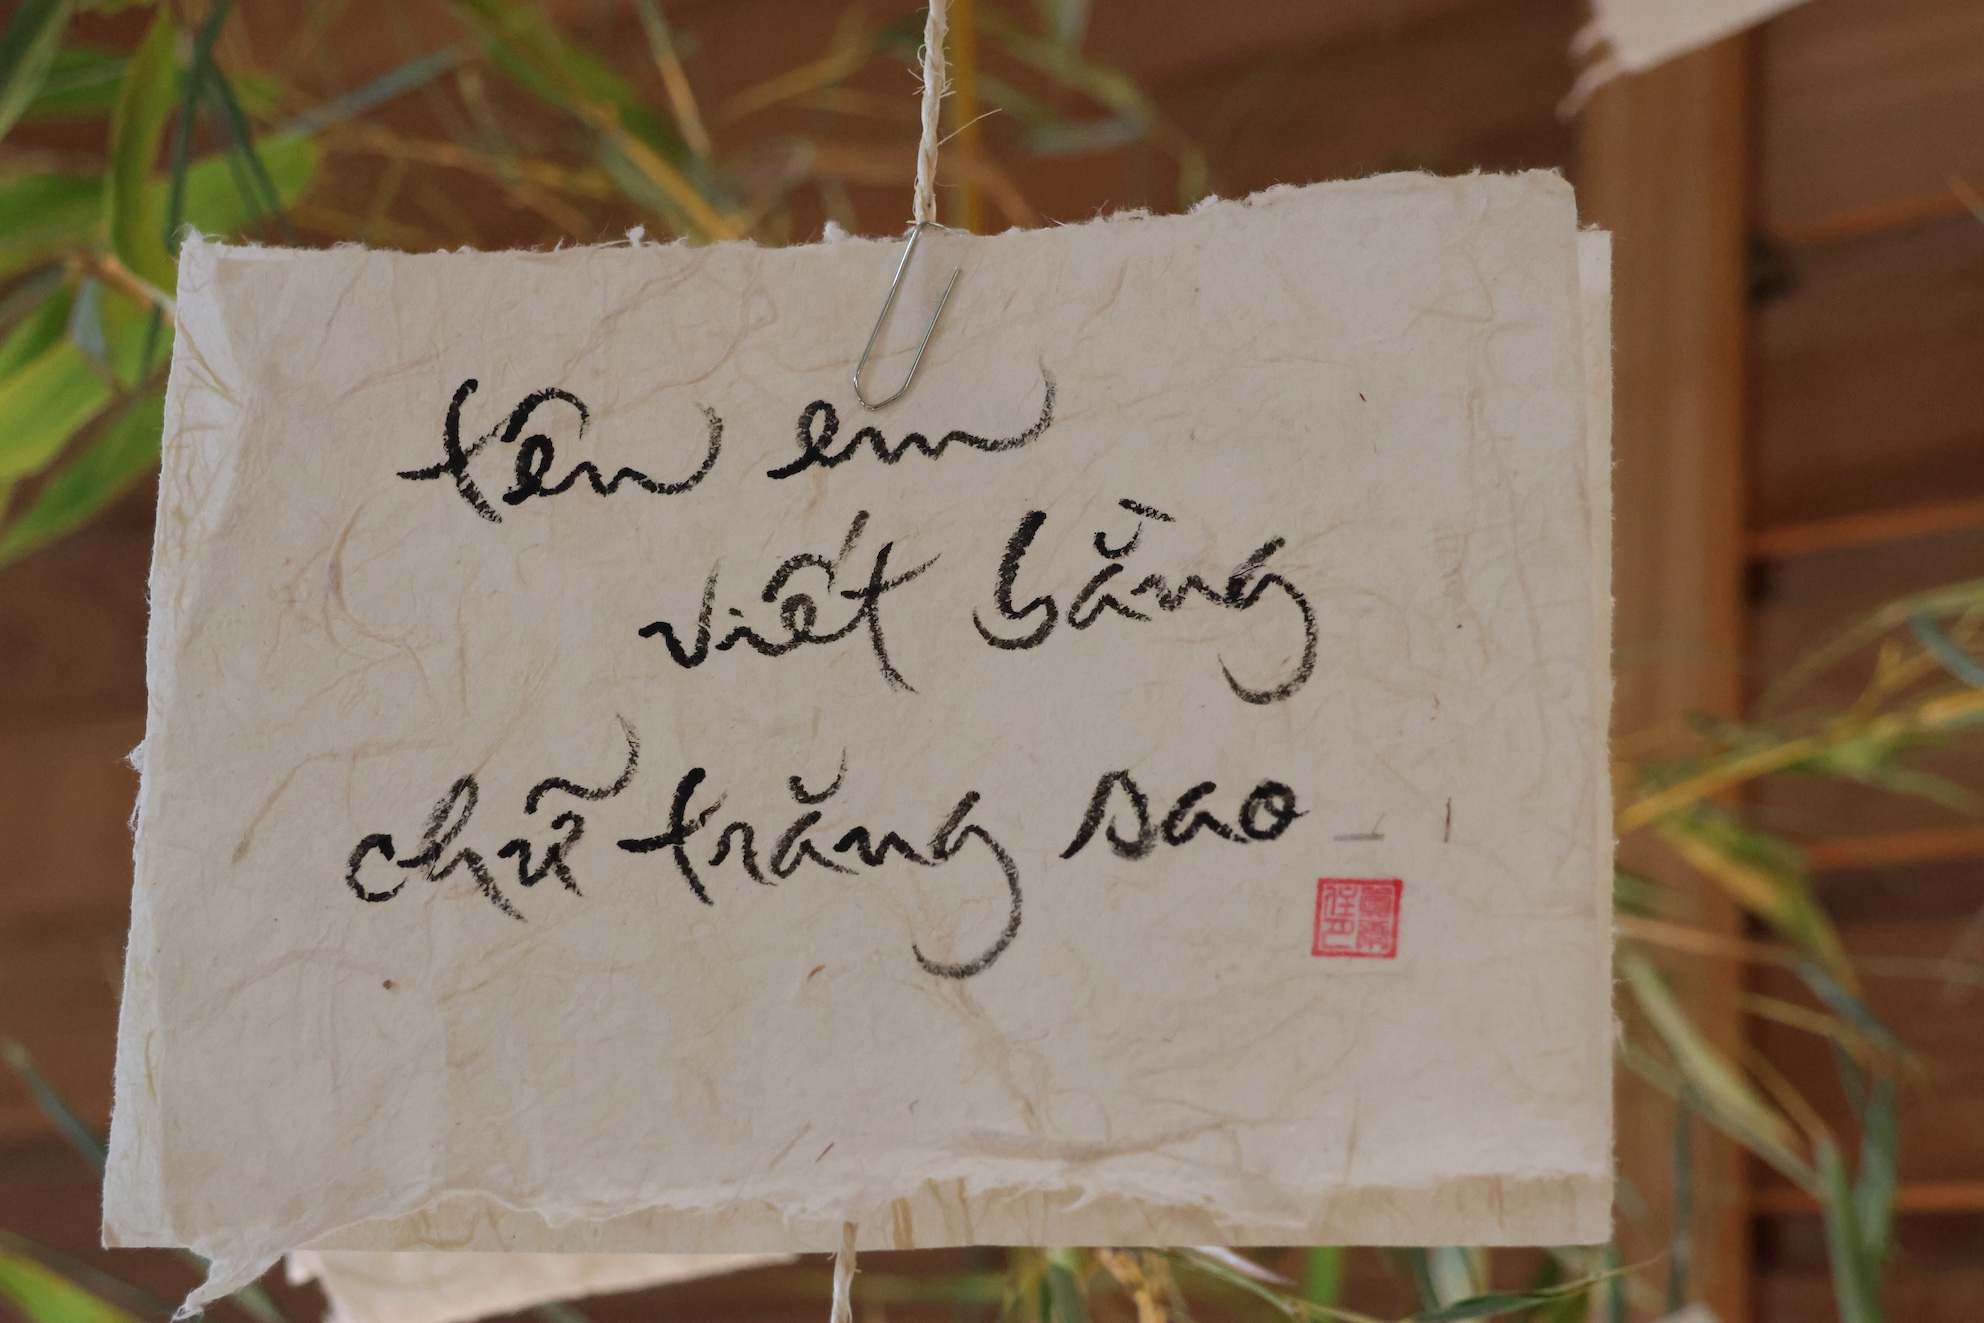 tên em
viết bằng
chữ trăng sao